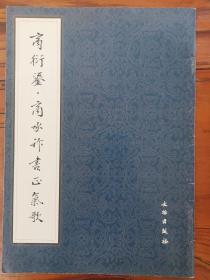 商衍鎏·商承祚书正气歌
文物出版社